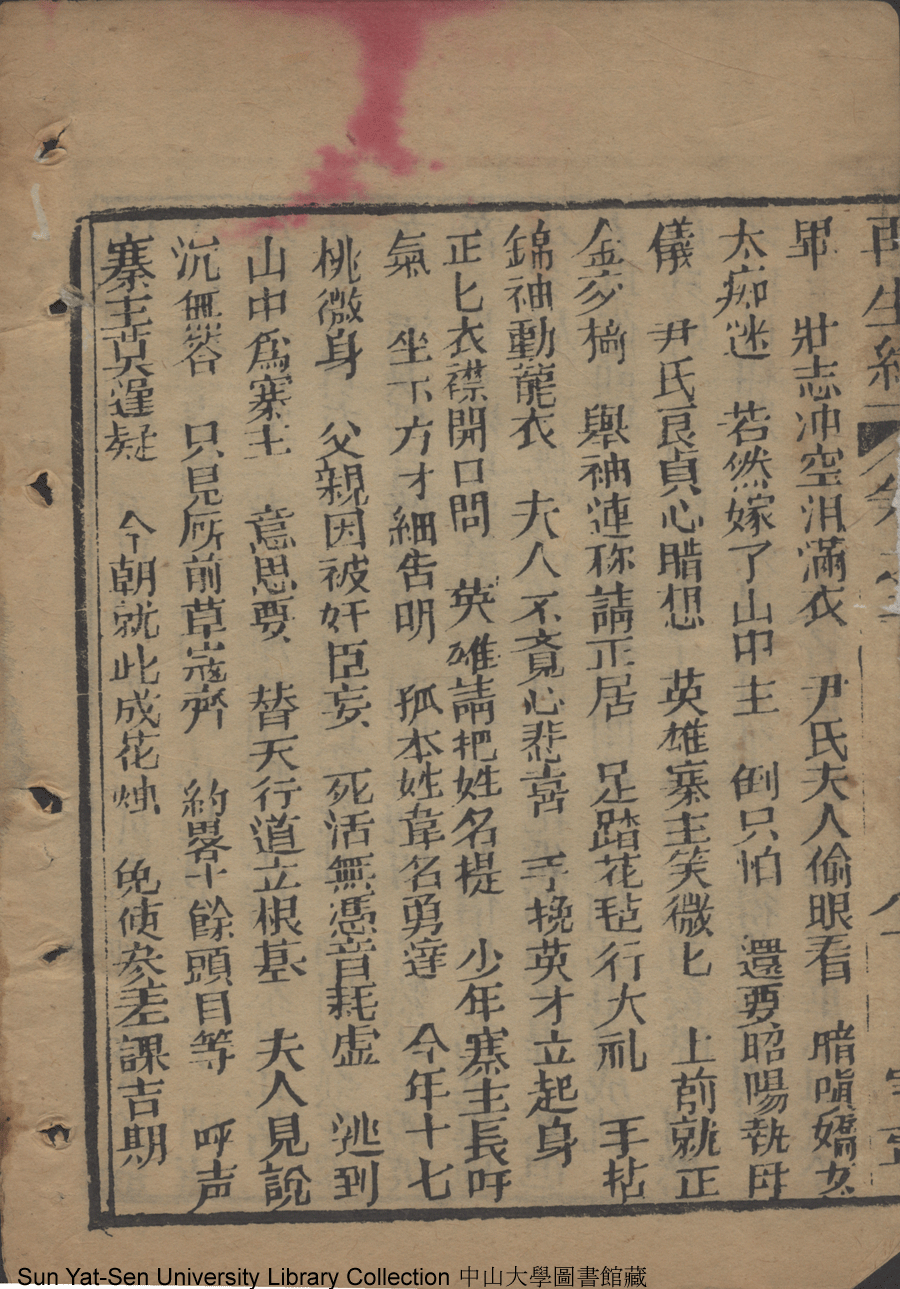 再生縁
畢 壯志冲空泪滿衣 尹氏夫人偷眼看 暗嗔嬌女
太痴迷 若然嫁了山中主 倒只怕 還要昭陽執母
儀 尹氏良貞心腊想 英雄寨主笑微匕 上前就正
金交椅 舉袖連称請正居 足踏花毡行大礼 手拈
錦袖動龍衣 夫人不覔心悲喜 手挽英才立起身
正匕衣襟開口問 英雄請把姓名提 少年寨主長吁
氣 坐下方才細告明 孤本姓韋名勇逹 今年十七
桃微身 父親因被奸臣妄 死活無憑音耗虚 逃到
山中爲寨主 意思要 替天行道立根基 夫人見說
沉無答 只見㕔前草寇齊 約畧十餘頭目等 呼声
寨主莫遲疑 今朝就此成花烛 免使參差課吉期
Sun Yat-Sen University Library Collection 中山大學圖書館藏